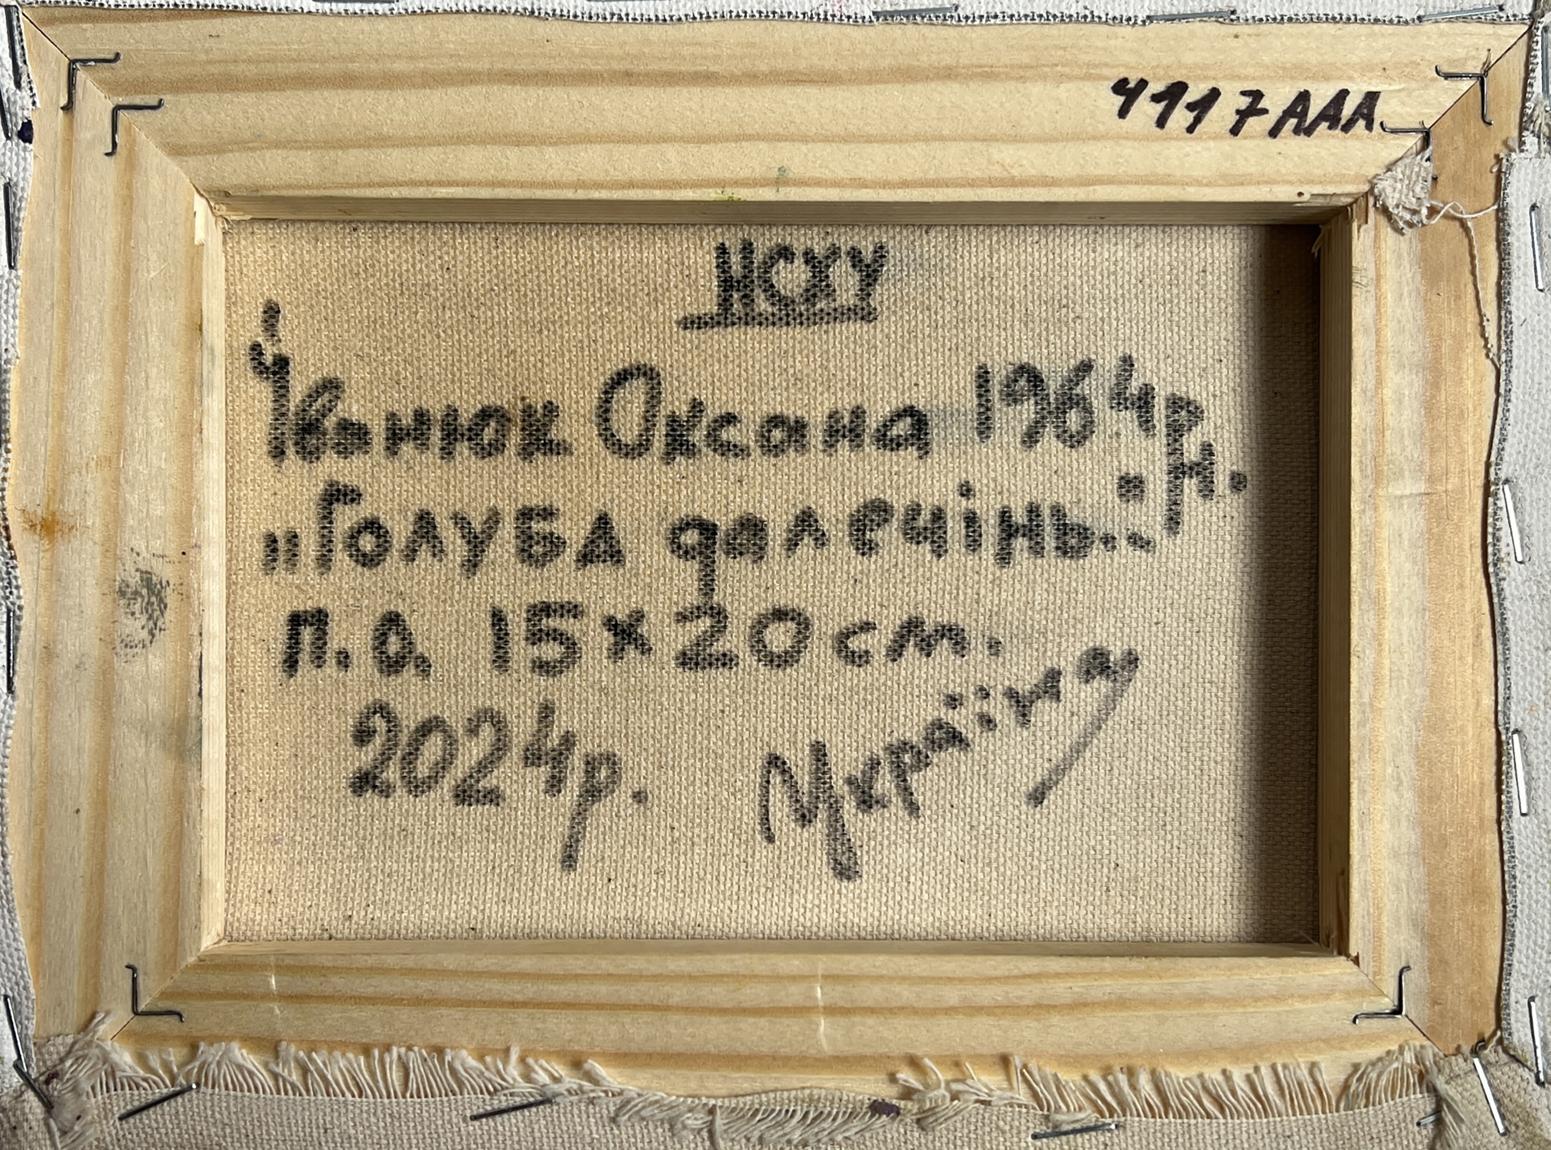 4117AAA
НСХУ
Іванюк Оксана 1964 р.н.
„Голуба далечінь..."
п.о. 15х20 см.
2024р. Україна